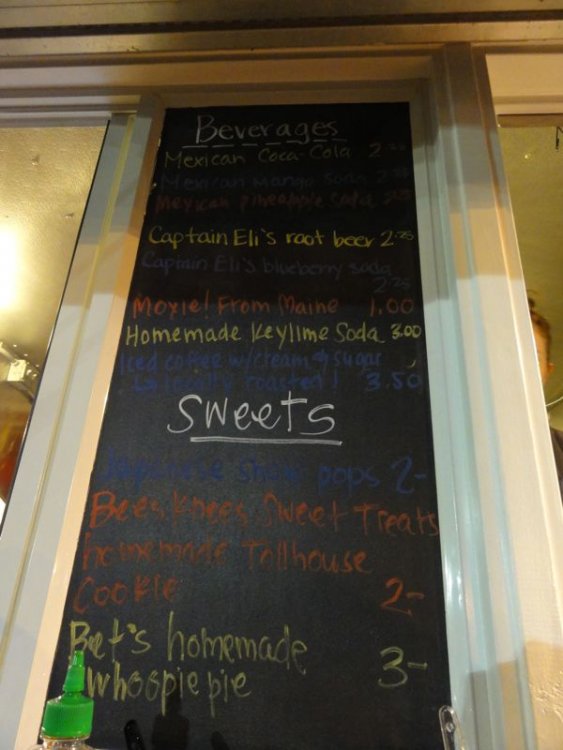 Beverages
Mexican Coca-Cola 2.25
Mexican Mango Soda 2.25
Mexican Pineapple Soda 2.25
Captain Eli's root beer 2.25
Captain Eli's blueberry soda
2.25
Moxie! From Maine 1.00
Homemade Keylime Soda 3.00
Iced coffee w/cream & sugar
locally roasted! 3.50
Sweets
Japanese snow pops 2-
Bees Knees Sweet Treats
homemade Tollhouse
Cookie 2-
Bet's homemade
whoopie pie 3-